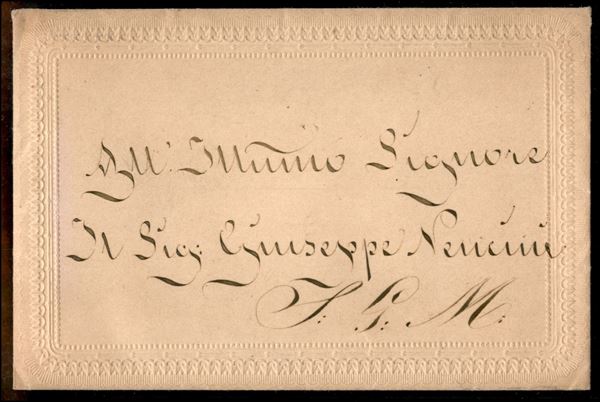 All' Illmo Signore
Il Sig: Giuseppe Nencini
S: P: M: